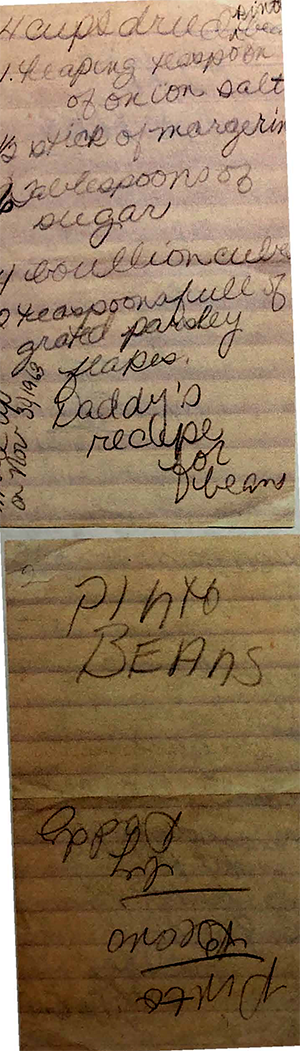 4 cups dried pinto beans
1. heaping teaspoon
of onion salt
½ stick of margerin
tablespoons of
sugar
4 bouillion cube
2 teaspoonsfull of
grated parsley
flakes.
Daddy's
recipe
for
beans
on Nov 3, 1963
PINTO
BEANS
Pinto
Beans
by
Daddy